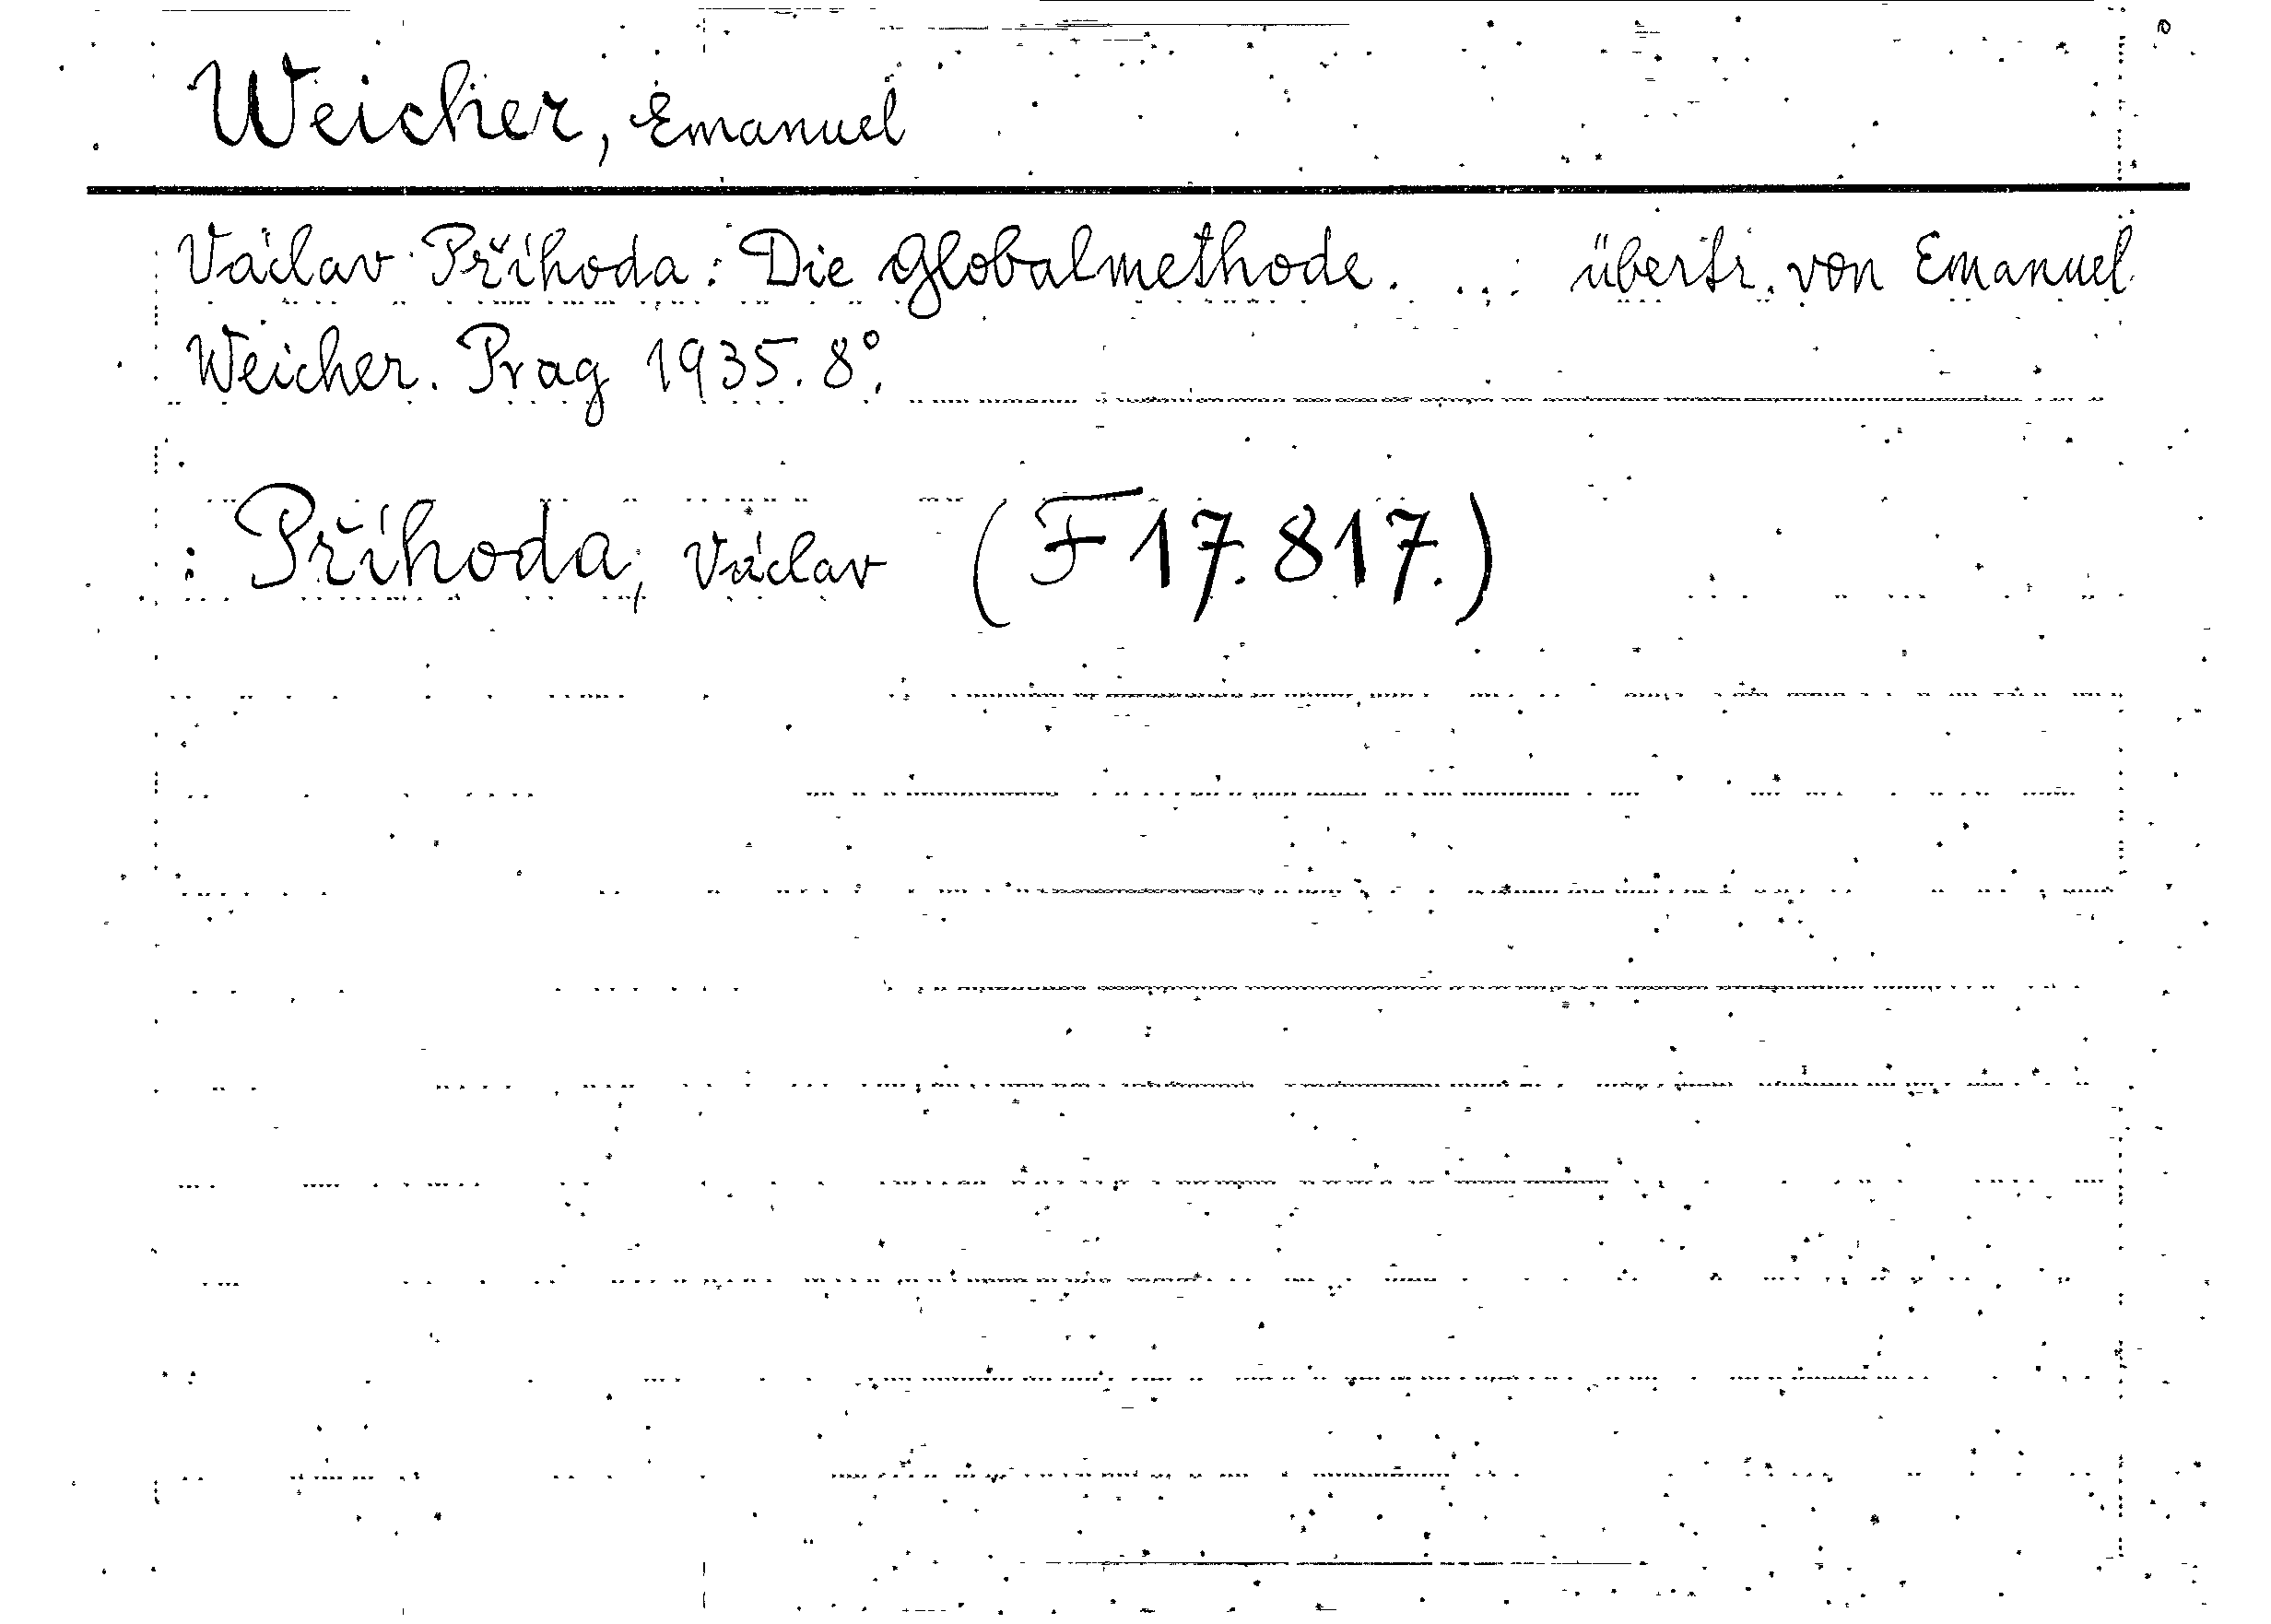 Weicher, Emanuel
Václav Příhoda: Die Globalmethode. ... übertr. von Emanuel
Weicher. Prag 1935. 8°.
: Příhoda, Václav (F 17.817.)